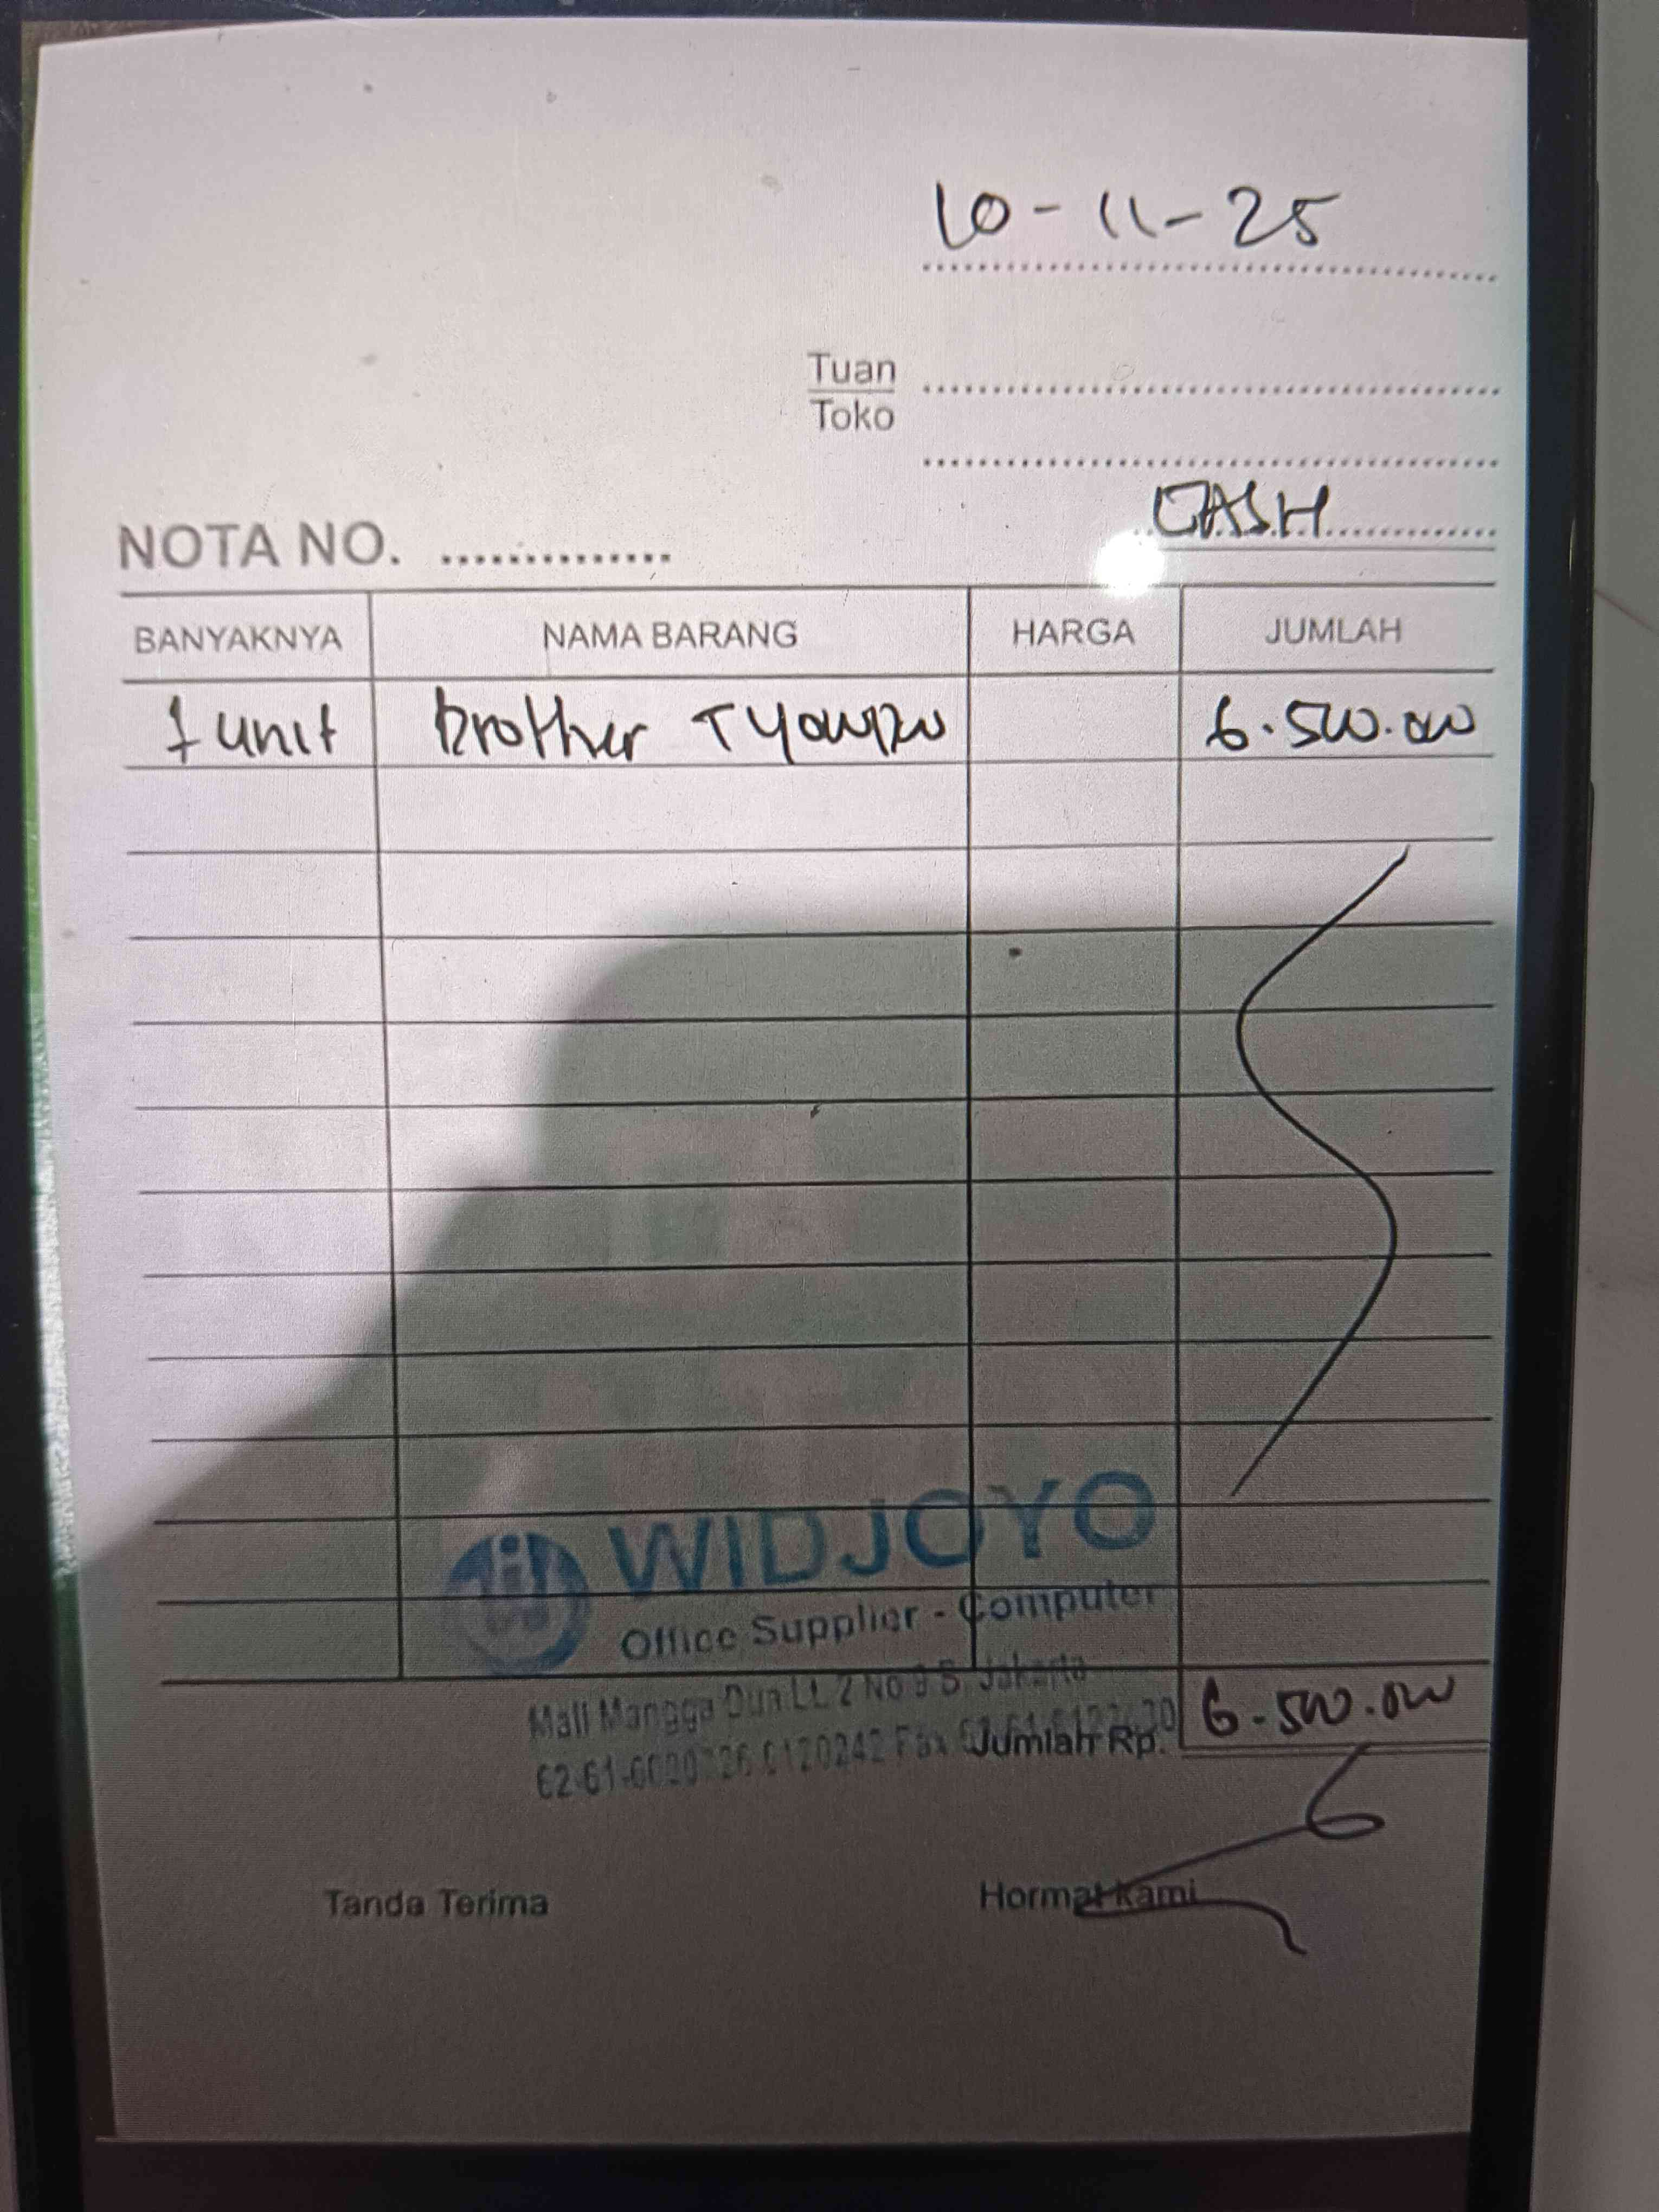 10-11-25
Tuan
Toko
CASH
NOTA NO.
BANYAKNYA NAMA BARANG HARGA JUMLAH
1 unit Brother 6.500.000
WIDJOYO
Office Supplier - Computer
Mall Mangga Dua Lt. 2 No 9 S. Jakarta
Jumlah Rp. 6.500.000
Tanda Terima Hormat Kami